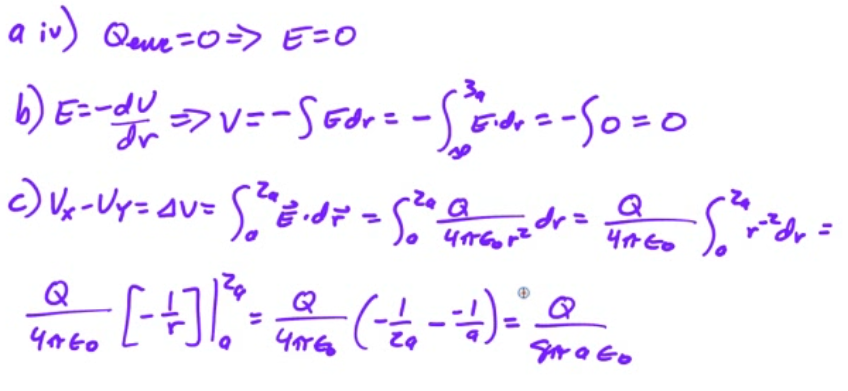 a iv) Q_enc = 0 => E = 0
b) E = -dV/dr => V = -∫ E dr = -∫_∞^{3a} E·dr = -∫0 = 0
c) V_x - V_y = ΔV = ∫_a^{2a} E⃗·dr⃗ = ∫_a^{2a} Q/(4πϵ₀r²) dr = Q/(4πϵ₀) ∫_a^{2a} r^{-2} dr =
Q/(4πϵ₀) [-1/r] |_a^{2a} = Q/(4πϵ₀) (-1/2a - -1/a) = Q/(8πaϵ₀)